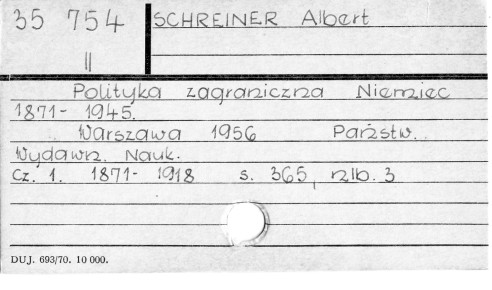 35 754 SCHREINER Albert
II
Polityka zagraniczna Niemiec
1871- 1945.
Warszawa 1956 Państw.
Wydawn. Nauk.
Cz. 1. 1871- 1918 s. 365, nlb. 3
DUJ. 693/70. 10 000.